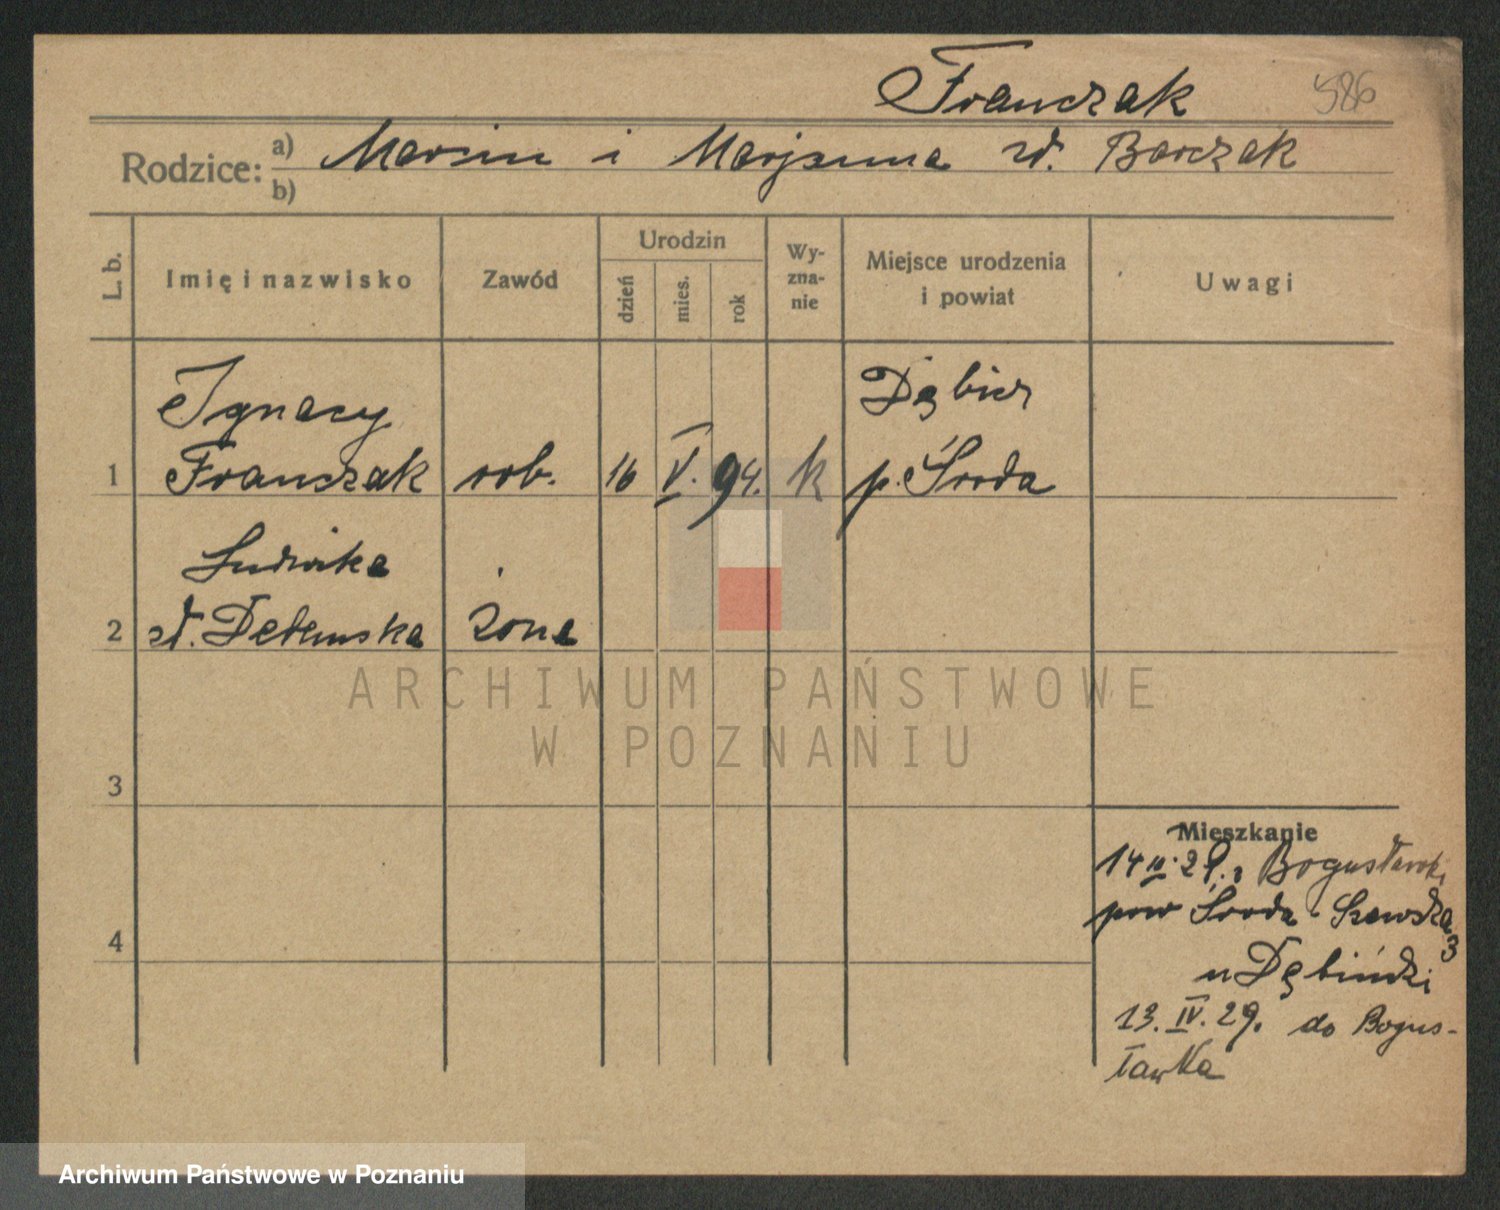 Franczak
586
Rodzice: a) Marcin i Marjanna zd. Barczak
b)
L. b.
Imię i nazwisko
Zawód
Urodzin
dzień
mies.
rok
Wy-
zna-
nie
Miejsce urodzenia
i powiat
Uwagi
Ignacy
Dębicz
1 Franczak rob. 16 V. 94. k p. Środa
Ludwika
2 zd. żona
3
4
ARCHIWUM PAŃSTWOWE
W POZNANIU
Mieszkanie
14 29. z Bogusławki
pow Środa Szewska
3
u
13. IV. 29. do Bogus-
ławka
Archiwum Państwowe w Poznaniu